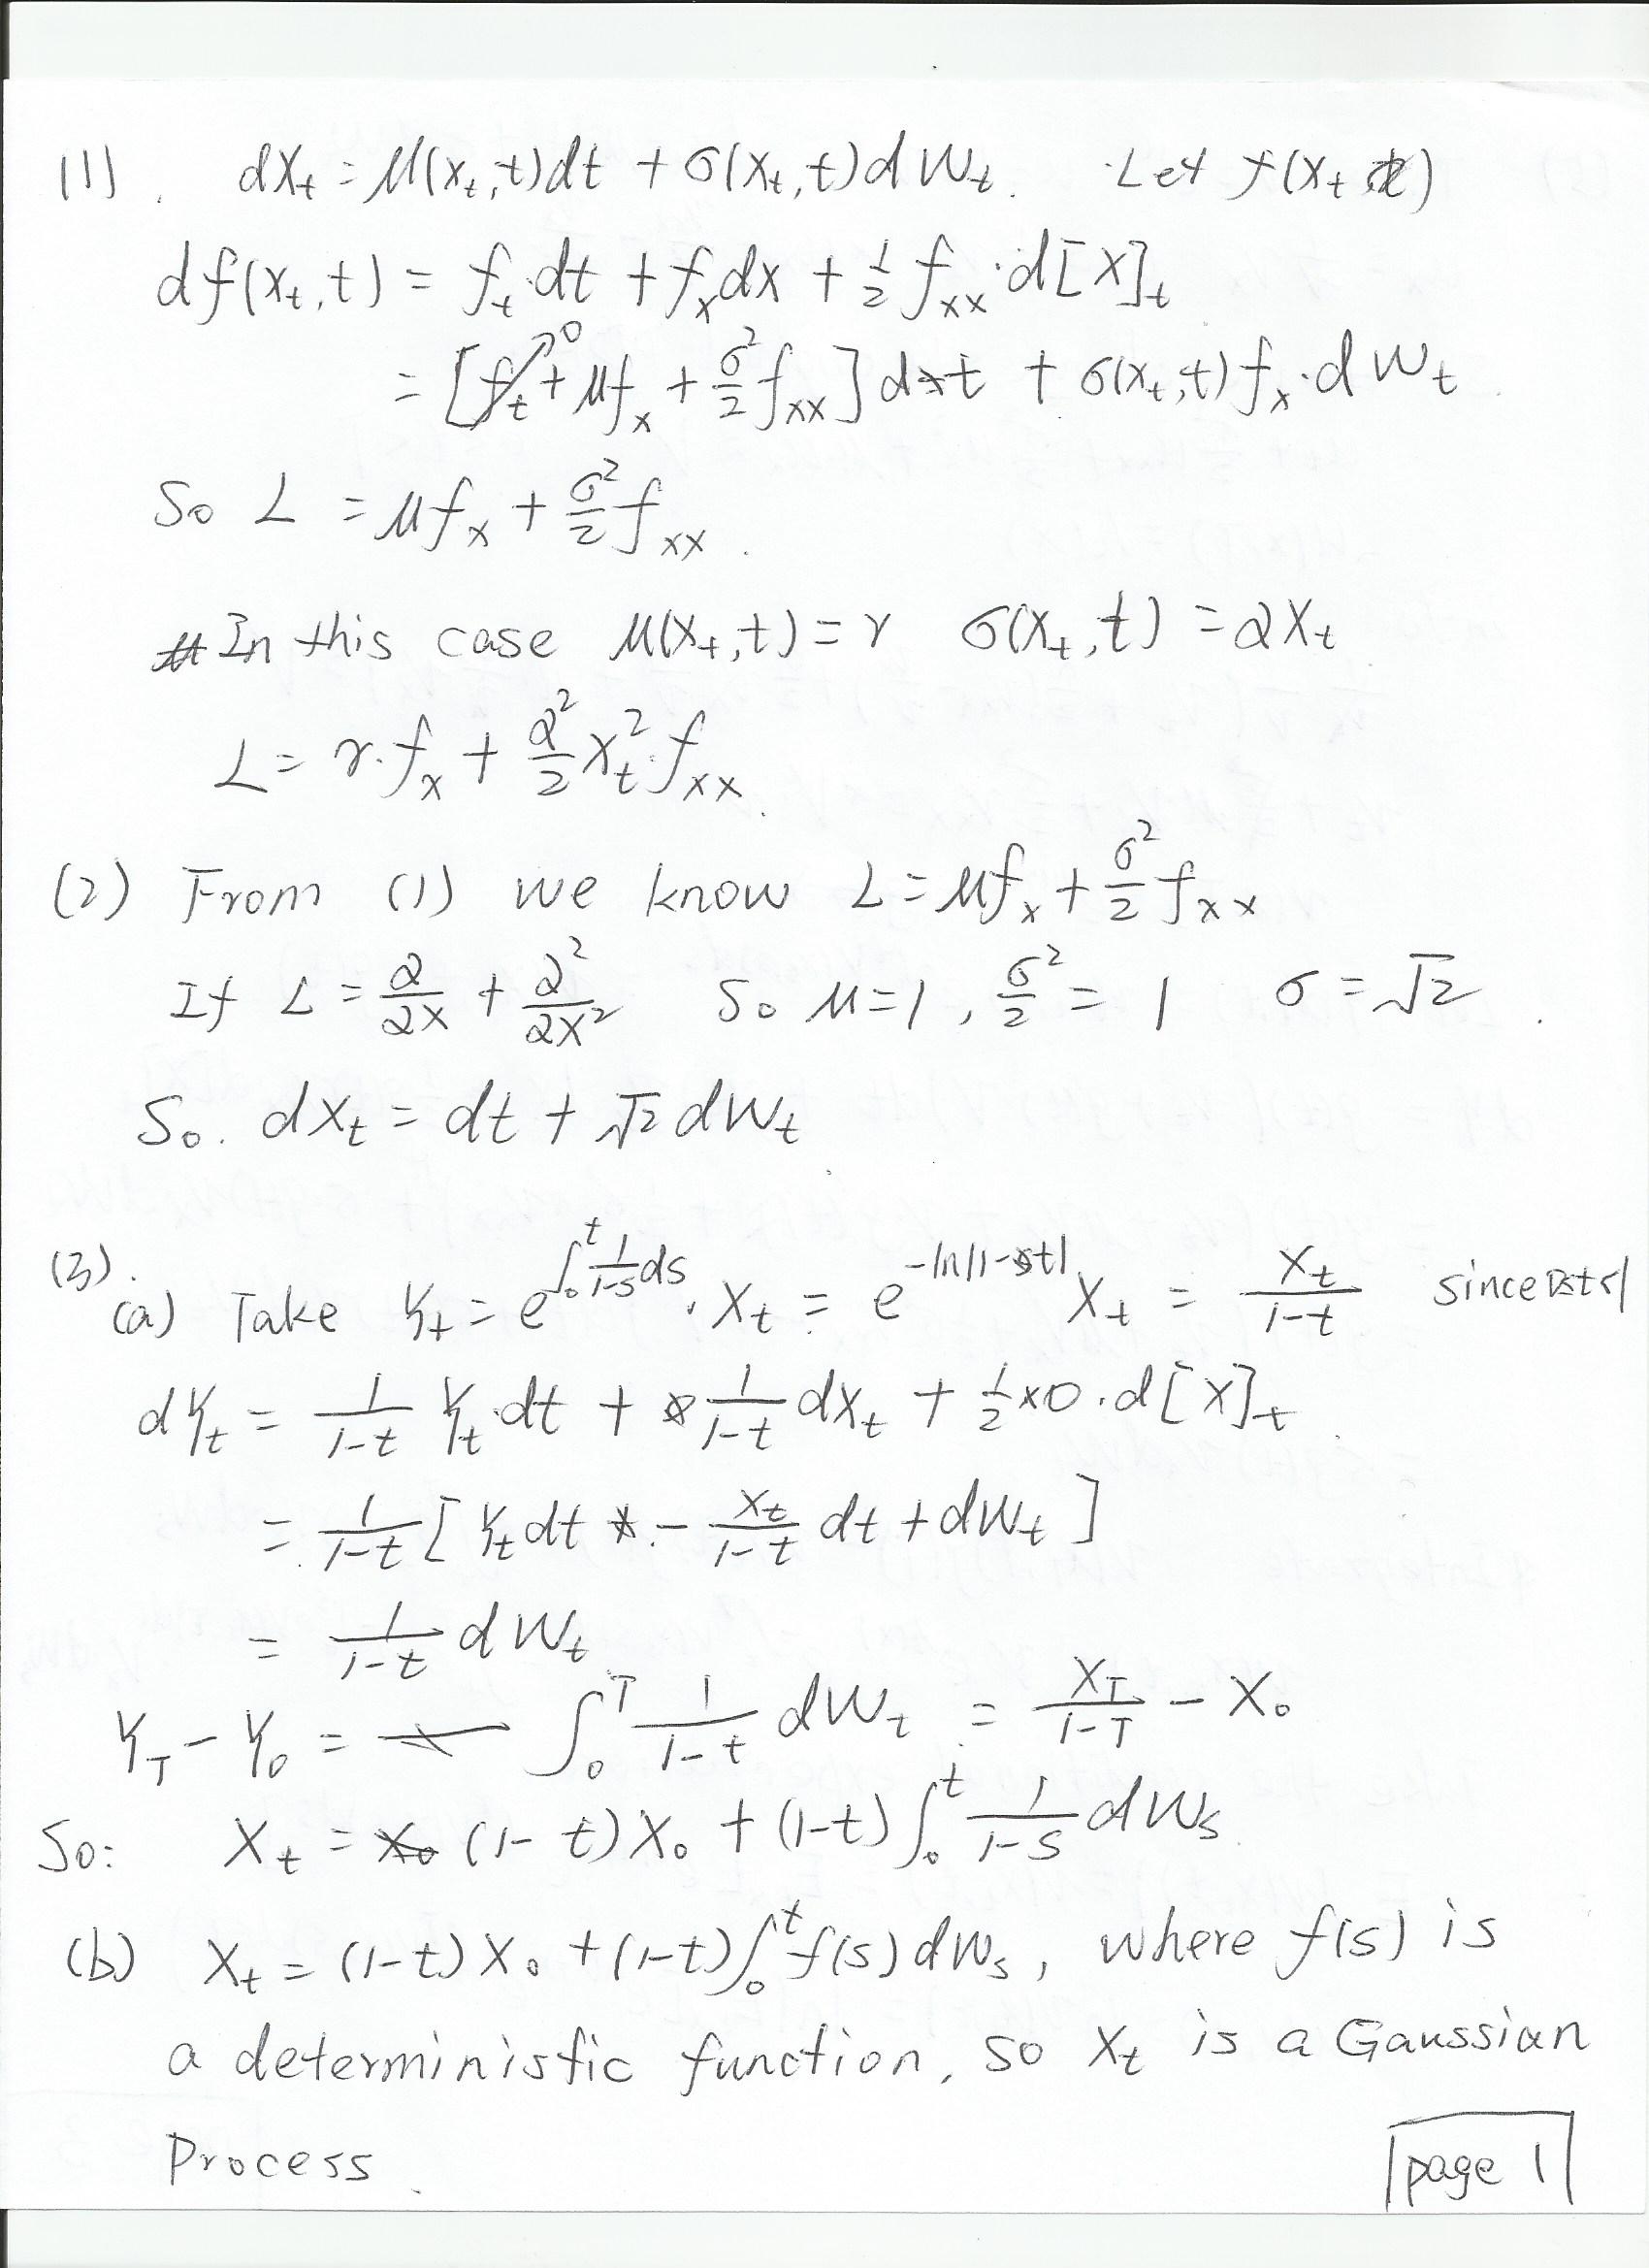 (1). dX_t = μ(X_t,t)dt + σ(X_t,t)dW_t. Let f(X_t,t)
df(X_t,t) = f_t·dt + f_x dx + 1/2 f_xx·d[X]_t
= [f_t→0 + μf_x + σ²/2 f_xx]dt + σ(X_t,t)f_x·dW_t
So L = μf_x + σ²/2 f_xx.
In this case μ(X_t,t) = r σ(X_t,t) = αX_t
L = r·f_x + α²/2 X_t²·f_xx.
(2) From (1) we know L = μf_x + σ²/2 f_xx
If L = ∂/∂x + ∂²/∂x² So μ=1, σ²/2 = 1 σ = √2.
So. dX_t = dt + √2 dW_t
(3).
(a) Take Y_t = e^{∫_0^t 1/(1-s) ds}·X_t = e^{-ln|1-t|} X_t = X_t/(1-t) since 0≤t<1
dY_t = 1/(1-t) Y_t·dt + 1/(1-t) dX_t + 1/2×0·d[X]_t.
= 1/(1-t) [Y_t dt - X_t/(1-t) dt + dW_t]
= 1/(1-t) dW_t
Y_T - Y_0 = ∫_0^T 1/(1-t) dW_t = X_T/(1-T) - X_0
So: X_t = (1-t)X_0 + (1-t)∫_0^t 1/(1-s) dW_s
(b) X_t = (1-t)X_0 + (1-t)∫_0^t f(s)dW_s, where f(s) is
a deterministic function, so X_t is a Gaussian
Process.
page 1